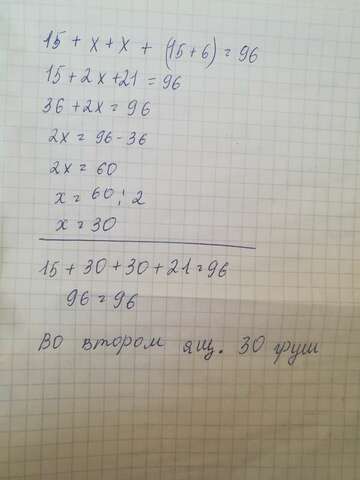 15 + x + x + (15+6) = 96
15 + 2x + 21 = 96
36 + 2x = 96
2x = 96 - 36
2x = 60
x = 60 : 2
x = 30
15 + 30 + 30 + 21 = 96
96 = 96
Во втором ящ. 30 груш